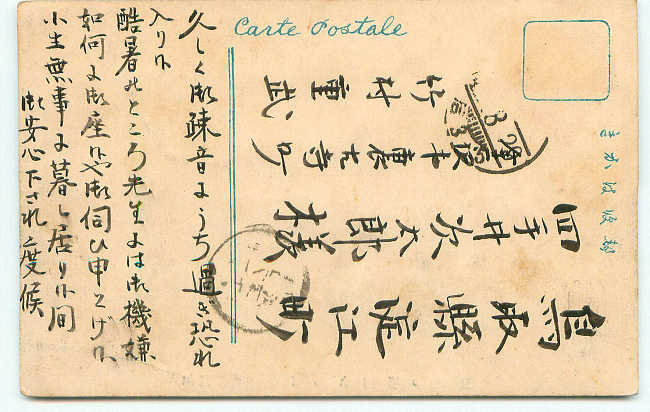 Carte Postale
鳥取縣淀江町
四手井次太郎様
竹村重武
久しく御疎音にうち置き恐れ
入り候
酷暑のところ先生には御機嫌
如何に御座候や御伺ひ申上げ候
小生無事に暮し居り候間
御安心下され度候